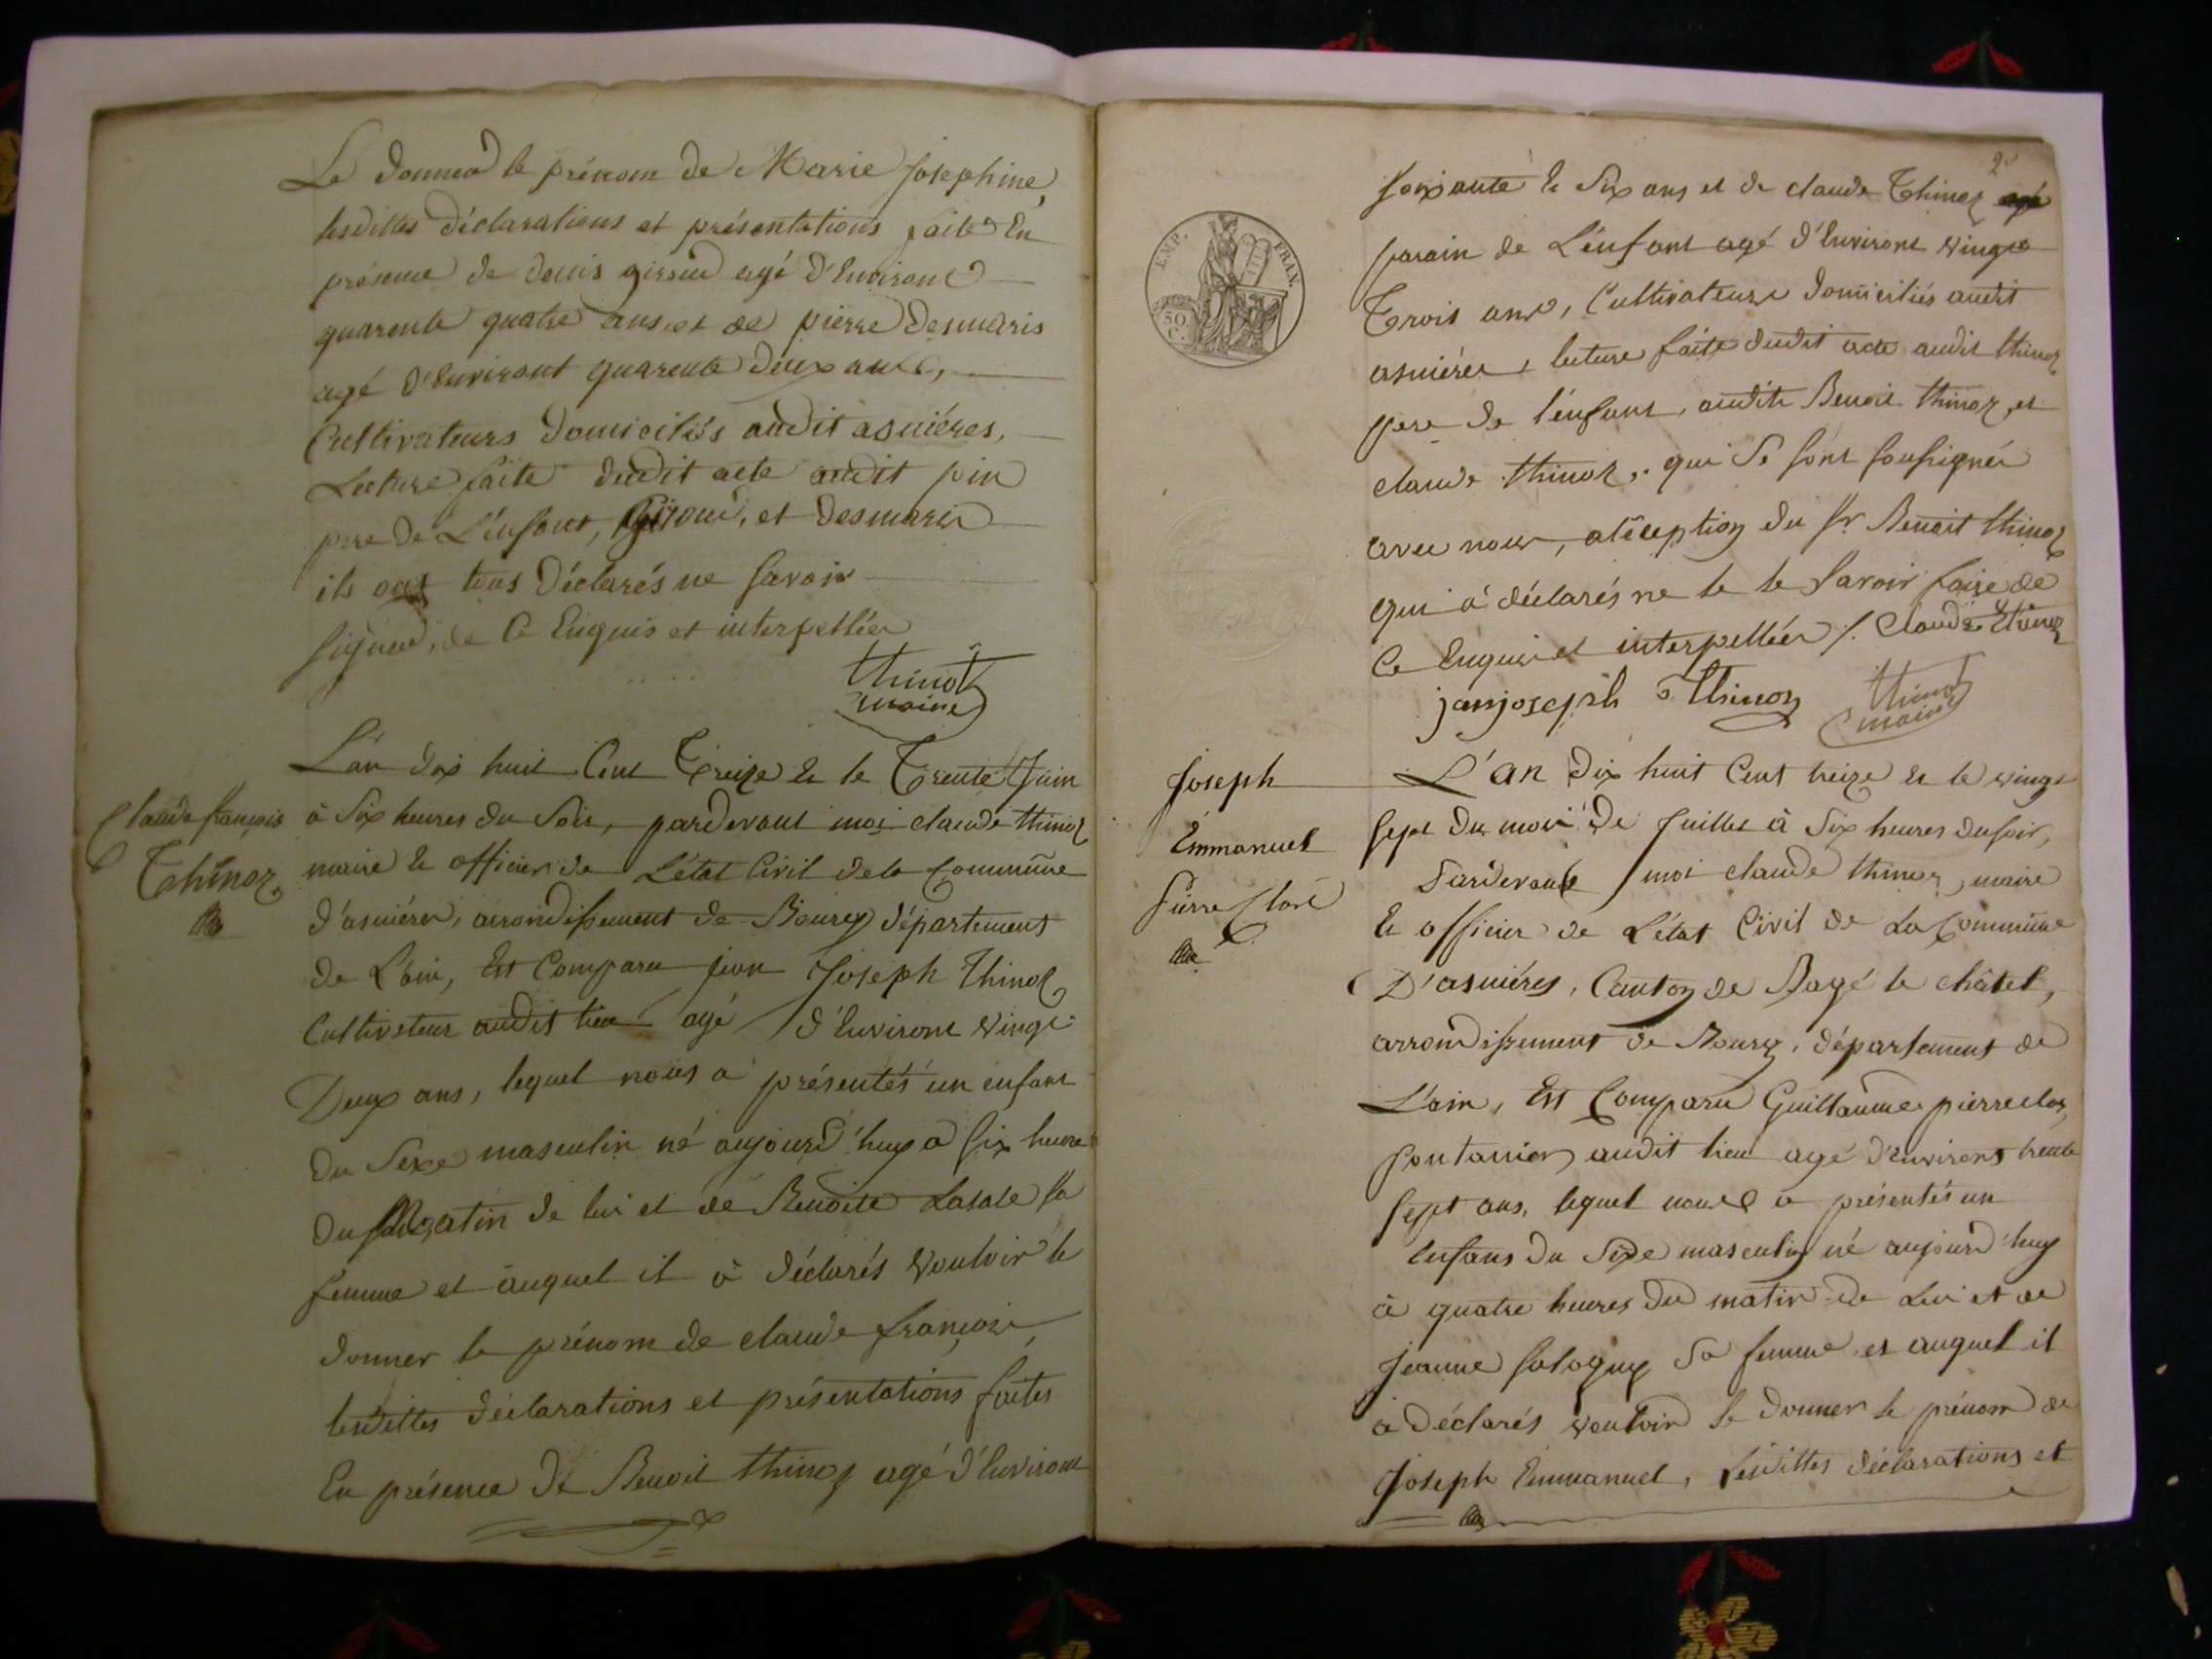 Le donner le prénom de Marie Josephine,
lesdittes déclarations et présentations faite En
présence de denis giroud agé d'Environt
quarente quatre ans, et de pierre Desmaris
agé d'Environt quarente deux ans,
Cultivateurs domiciliés audit asniéres,
Lecture faite dudit acte audit pin
pere de L'énfant, giroud, et desmaris
ils ont tous déclarés ne savoir
signer, de ce Enquis et interpellés
thinoz
maire
Claude françois
Thinoz
L'an dix huit Cent Treize & le Trente Juin
à Six heures du Soir, pardevant moi claude thinoz
maire & officier de L'état Civil de la Commune
d'asniéres, arrondissement de Bourg département
de L'ain, Est Comparu jean Joseph Thinoz
Cultivateur audit lieu agé d'Environt vingt
Deux ans, lequel nous a présentés un enfant
du Sexe masculin né aujourd'huy a six heures
du matin de lui et de Benoite Lasale sa
femme et auquel il à déclarés vouloir le
donner le prénom de claude françois,
lesdittes déclarations et présentations faites
En présence de Benoit thinoz agé d'Environt
2
EMP. FRAN.
50
C.
soixante & Six ans et de claude Thinoz agé
parain de L'énfant agé d'Environt vingt
Trois ans, Cultivateurs domiciliés audit
asniéres, lecture faite dudit acte audit thinoz
pere de l'énfant, audit Benoit thinoz, et
claude thinoz, qui Se sont soussignés
avec nous, aléception du sr Benoit thinoz
qui à déclarés ne le le savoir faire de
Ce Enquis et interpellés /. Claude thinoz
janjoseph Thinoz
thinoz
maire
Joseph
Emmanuel
Pierre Clos
L'an Dix huit Cent treize & le vingt
sept du mois de Juillet à Six heures du soir,
Pardevant moi claude thinoz, maire
& officier de L'état Civil de La Commune
D'asniéres, Canton de Bagé le châtel,
arrondissement de Bourg, département de
L'ain, Est Comparu Guillaume pierreclos,
pontanier audit lieu agé d'environt trente
sept ans, lequel nous a présentés un
Enfans du Sexe masculin né aujourd'huy
à quatre heures du matin de Lui et de
jeanne sologny Sa femme, et auquel il
à déclarés vouloir le donner le prénom de
Joseph Emmanuel, Lesdittes déclarations et